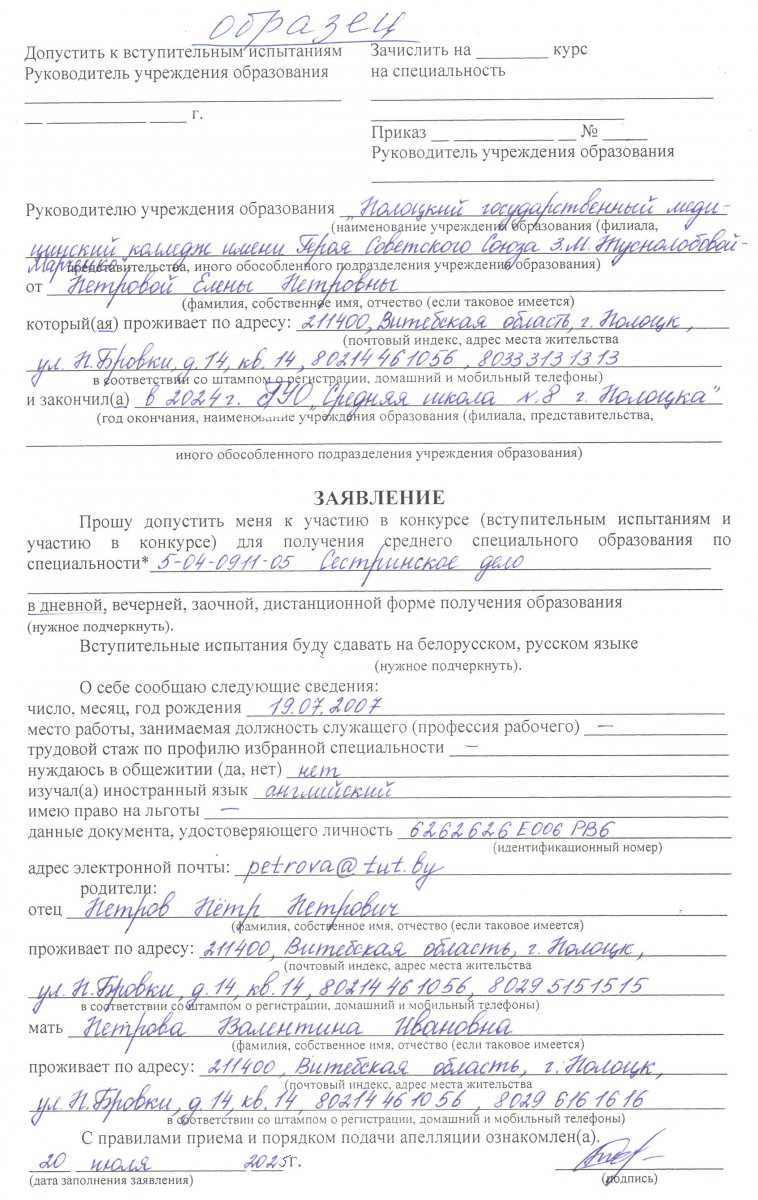 образец
Допустить к вступительным испытаниям
Руководитель учреждения образования
__ ____________ ____ г.
Зачислить на ________ курс
на специальность
Приказ __ ___________ __ № _____
Руководитель учреждения образования
Руководителю учреждения образования „Полоцкий государственный меди-
(наименование учреждения образования (филиала,
цинский колледж имени Героя Советского Союза З.М. Туснолобовой-
Марченко"
представительства, иного обособленного подразделения учреждения образования)
от Петровой Елены Петровны
(фамилия, собственное имя, отчество (если таковое имеется)
который(ая) проживает по адресу: 211400, Витебская область, г. Полоцк,
(почтовый индекс, адрес места жительства
ул. П.Бровки, д.14, кв. 14, 80214461056, 80333131313
в соответствии со штампом о регистрации, домашний и мобильный телефоны)
и закончил(а) в 2024 г. ГУО „Средняя школа №8 г. Полоцка"
(год окончания, наименование учреждения образования (филиала, представительства,
иного обособленного подразделения учреждения образования)
ЗАЯВЛЕНИЕ
Прошу допустить меня к участию в конкурсе (вступительным испытаниям и
участию в конкурсе) для получения среднего специального образования по
специальности* 5-04-0911-05 Сестринское дело
в дневной, вечерней, заочной, дистанционной форме получения образования
(нужное подчеркнуть).
Вступительные испытания буду сдавать на белорусском, русском языке
(нужное подчеркнуть).
О себе сообщаю следующие сведения:
число, месяц, год рождения 19.07.2007
место работы, занимаемая должность служащего (профессия рабочего) —
трудовой стаж по профилю избранной специальности —
нуждаюсь в общежитии (да, нет) нет
изучал(а) иностранный язык английский
имею право на льготы —
данные документа, удостоверяющего личность 6262626 Е006 РВ6
(идентификационный номер)
адрес электронной почты: petrova@tut.by
родители:
отец Петров Пётр Петрович
(фамилия, собственное имя, отчество (если таковое имеется)
проживает по адресу: 211400, Витебская область, г. Полоцк,
(почтовый индекс, адрес места жительства
ул. П.Бровки, д.14, кв.14, 80214461056, 80295151515
в соответствии со штампом о регистрации, домашний и мобильный телефоны)
мать Петрова Валентина Ивановна
(фамилия, собственное имя, отчество (если таковое имеется)
проживает по адресу: 211400, Витебская область, г. Полоцк,
(почтовый индекс, адрес места жительства
ул. П.Бровки, д.14, кв.14, 80214461056, 80296161616
в соответствии со штампом о регистрации, домашний и мобильный телефоны)
С правилами приема и порядком подачи апелляции ознакомлен(а).
20 июля 2025г.
(дата заполнения заявления)
(подпись)